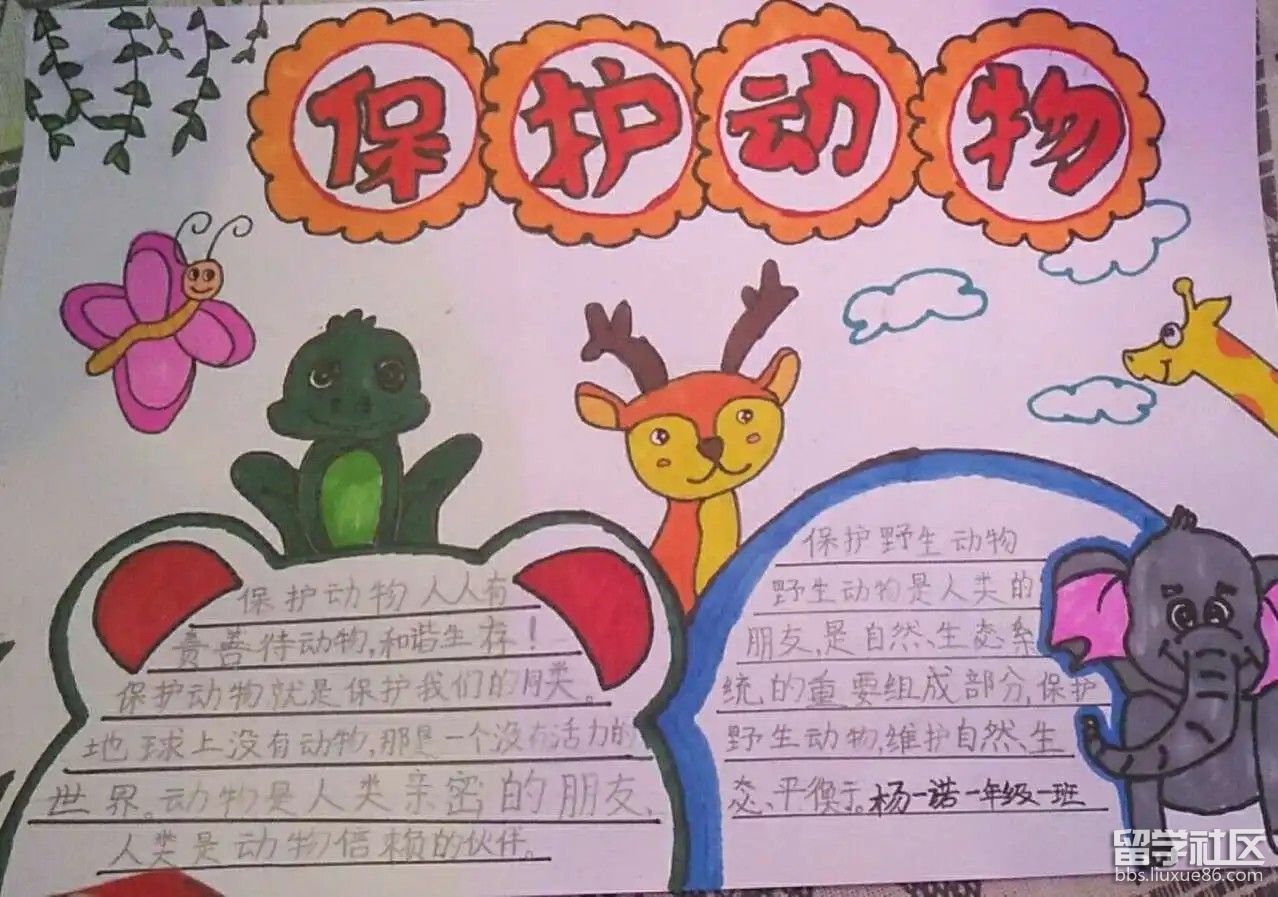 保护动物
保护动物人人有
责善待动物,和谐生存！
保护动物就是保护我们的同类。
地球上没有动物,那是一个没有活力的
世界。动物是人类亲密的朋友、
人类是动物信赖的伙伴。
保护野生动物
野生动物是人类的
朋友,是自然、生态系
统的重要组成部分,保护
野生动物,维护自然、生
态、平衡于。杨一诺一年级一班
留学社区
bbs.liuxue86.com